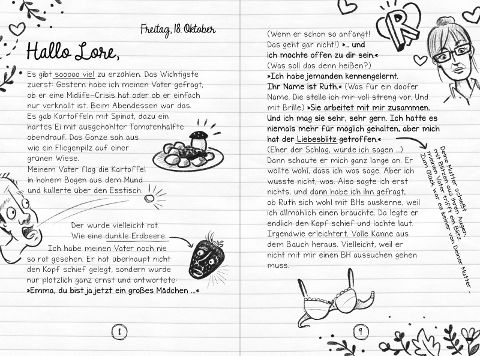 Freitag, 18. Oktober
Hallo Lore,
Es gibt sooooo viel zu erzählen. Das Wichtigste
zuerst: Gestern habe ich meinen Vater gefragt,
ob er eine Midlife-Crisis hat oder ob er einfach
nur verknallt ist. Beim Abendessen war das.
Es gab Kartoffeln mit Spinat, dazu ein
hartes Ei mit ausgehöhlter Tomatenhälfte
obendrauf. Das Ganze sah aus
wie ein Fliegenpilz auf einer
grünen Wiese.
Meinem Vater flog die Kartoffel
in hohem Bogen aus dem Mund
und kullerte über den Esstisch.
Der wurde vielleicht rot.
Wie eine dunkle Erdbeere.
Ich habe meinen Vater noch nie
so rot gesehen. Er hat überhaupt nicht
den Kopf schief gelegt, sondern wurde
nur plötzlich ganz ernst und antwortete:
»Emma, du bist ja jetzt ein großes Mädchen ...«
8
(Wenn er schon so anfängt!
Das geht gar nicht!) »... und
ich möchte offen zu dir sein.«
(Was soll denn heißen?)
»Ich habe jemanden kennengelernt.
Ihr Name ist Ruth.« (Was für ein doofer
Name. Die stelle ich mir voll streng vor. Und
mit Brille.) »Sie arbeitet mit mir zusammen.
Und ich mag sie sehr, sehr gern. Ich hätte es
niemals mehr für möglich gehalten, aber mich
hat der Liebesblitz getroffen.«
(Eher der Schlag, würde ich sagen ...)
Dann schaute er mich ganz lange an. Er
wollte wohl, dass ich was sage. Aber ich
wusste nicht, was. Also sagte ich erst
nichts, und dann habe ich ihn gefragt,
ob Ruth sich wohl mit BHs auskenne, weil
ich allmählich einen bräuchte. Da legte er
endlich den Kopf schief und lachte laut.
Irgendwie erleichtert. Volle Kanne aus
dem Bauch heraus. Vielleicht, weil er
nicht mit mir einen BH aussuchen gehen
muss.
R
9